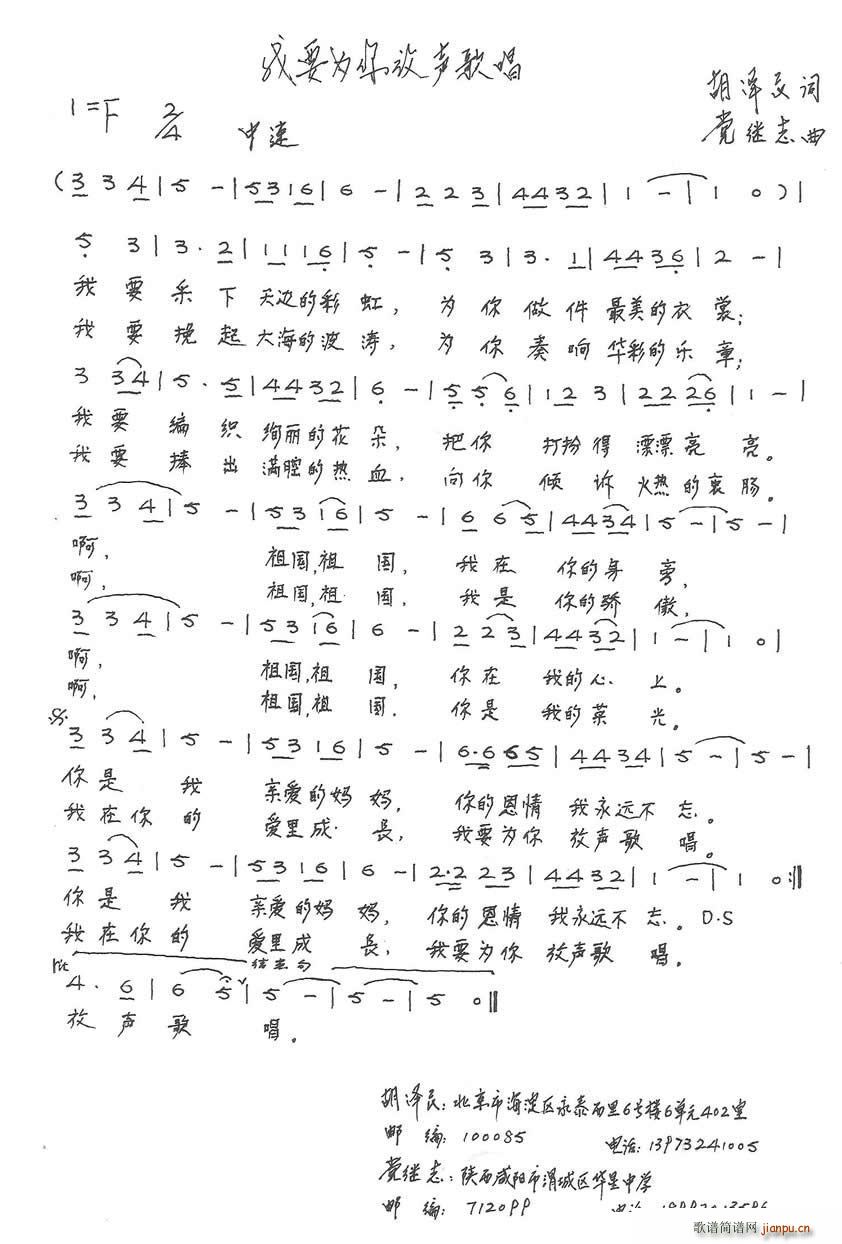 我要为你放声歌唱
胡泽民词
1=F 2/4 中速
党继志曲
(3 3 4|5 -|5316|6 -|2 2 3|4432|1 -|1 0)|
5 3|3. 2|1116|5 -|5 3|3. 1|4436|2 -|
我要采下天边的彩虹，为你做件最美的衣裳；
我要挽起大海的波涛，为你奏响华彩的乐章；
3 34|5. 5|4432|6 -|5 5 6|12 3|2226|1 -|
我要编织绚丽的花朵，把你打扮得漂漂亮亮。
我要捧出满腔的热血，向你倾诉火热的衷肠。
3 3 4|5 -|53 16|5 -|6 6 5|4434|5 -|5 -|
啊，祖国，祖国，我在你的身旁，
啊，祖国，祖国，我是你的骄傲，
3 3 4|5 -|53 16|6 -|2 2 3|4432|1 -|1 0|
啊，祖国，祖国，你在我的心上。
啊，祖国，祖国．你是我的荣光。
3 3 4|5 -|53 16|5 -|6·6 65|4434|5 -|5 -|
你是我亲爱的妈妈，你的恩情我永远不忘。
我在你的爱里成长，我要为你放声歌唱。
3 3 4|5 -|53 16|6 -|2·2 23|4432|1 -|1 0:‖
你是我亲爱的妈妈，你的恩情我永远不忘。D.S
我在你的爱里成長，我要为你放声歌唱。
rit 结束句
4. 6|6 5|5 -|5 -|5 0‖
放声歌唱。
胡泽民：北京市海淀区永泰西里6号楼6单元402室
邮编：100085 电话：13973241005
党继志：陕西咸阳市渭城区华星中学
邮编：712099
歌谱简谱网 jianpu.cn